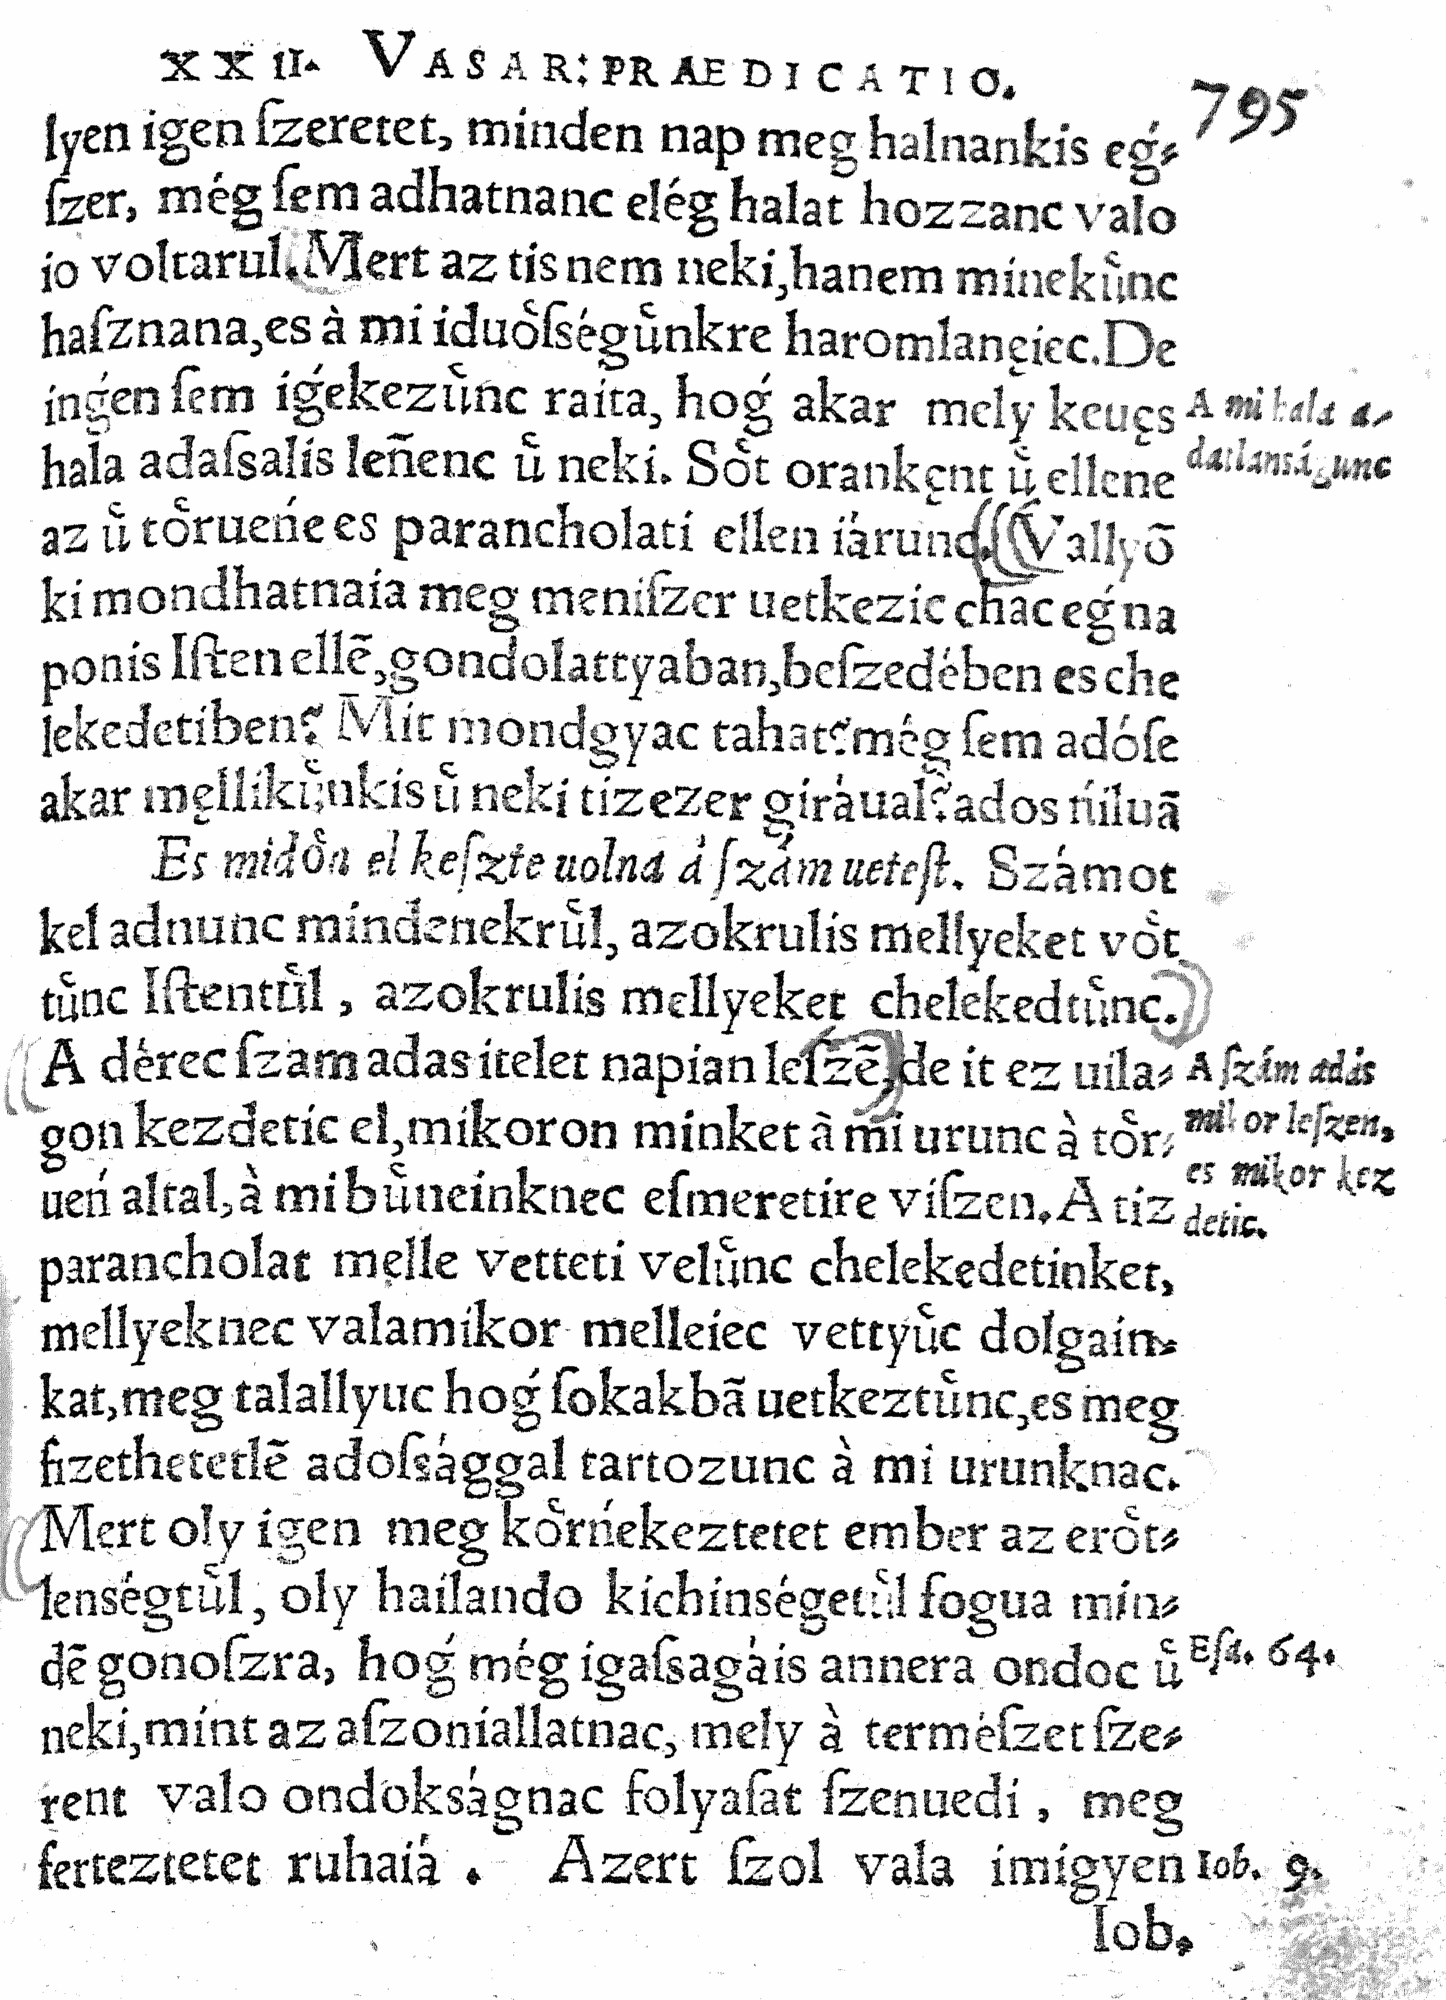 XXII. VASAR: PRAEDICATIO.
795
lyen igen ſzeretet, minden nap meg halnankis eǵ⸗
ſzer, még ſem adhatnanc elég halat hozzanc valo
io voltarul. Mert az tis nem neki, hanem minekuͤnc
haſznana, es à mi iduoͤſséguͤnkre haromlanęiec. De
inǵen ſem iǵekezuͤnc raita, hoǵ akar mely keuęs
A mi hala a⸗
hala adaſsalis leñenc uͤ neki. Soͤt orankęnt uͤ ellene
datlanságunc
az uͤ toͤrueńe es parancholati ellen iárunc. Vallyõ
ki mondhatnaia meg meniſzer uetkezic chac eǵ na
ponis Iſten ellẽ, gondolattyaban, beſzedében es che
lekedetiben? Mit mondgyac tahat? még ſem adóſe
akar męllikuͤnkis uͤ neki tizezer giráual? ados ńiluã
Es midoͤn el keſzte uolna á ſzám ueteſt. Számot
kel adnunc mindenekruͤl, azokrulis mellyeket voͤt
tuͤnc Iſtentuͤl, azokrulis mellyeket chelekedtuͤnc.
A dérec ſzam adas itelet napian leſzẽ, de it ez uila⸗
A ſzám adás
gon kezdetic el, mikoron minket à mi urunc à toͤr⸗
mikor leſzen,
ueń altal, à mi buͤneinknec eſmeretire viſzen. A tiz
es mikor kez
detic.
parancholat męlle vetteti veluͤnc chelekedetinket,
mellyeknec valamikor melleiec vettyuͤc dolgain⸗
kat, meg talallyuc hoǵ ſokakbã uetkeztuͤnc, es meg
fizethetetlẽ adoſsággal tartozunc à mi urunknac.
Mert oly igen meg koͤrńekeztetet ember az eroͤt⸗
lenségtuͤl, oly hailando kichinségetuͤl fogua min⸗
dẽ gonoſzra, hoǵ még igaſsagáis annera ondoc uͤ
Eſa. 64.
neki, mint az aſzoniallatnac, mely à terméſzet ſze⸗
rent valo ondokságnac folyaſat ſzenuedi, meg
ferteztetet ruhaiá. Azert ſzol vala imigyen
Iob. 9.
Iob.